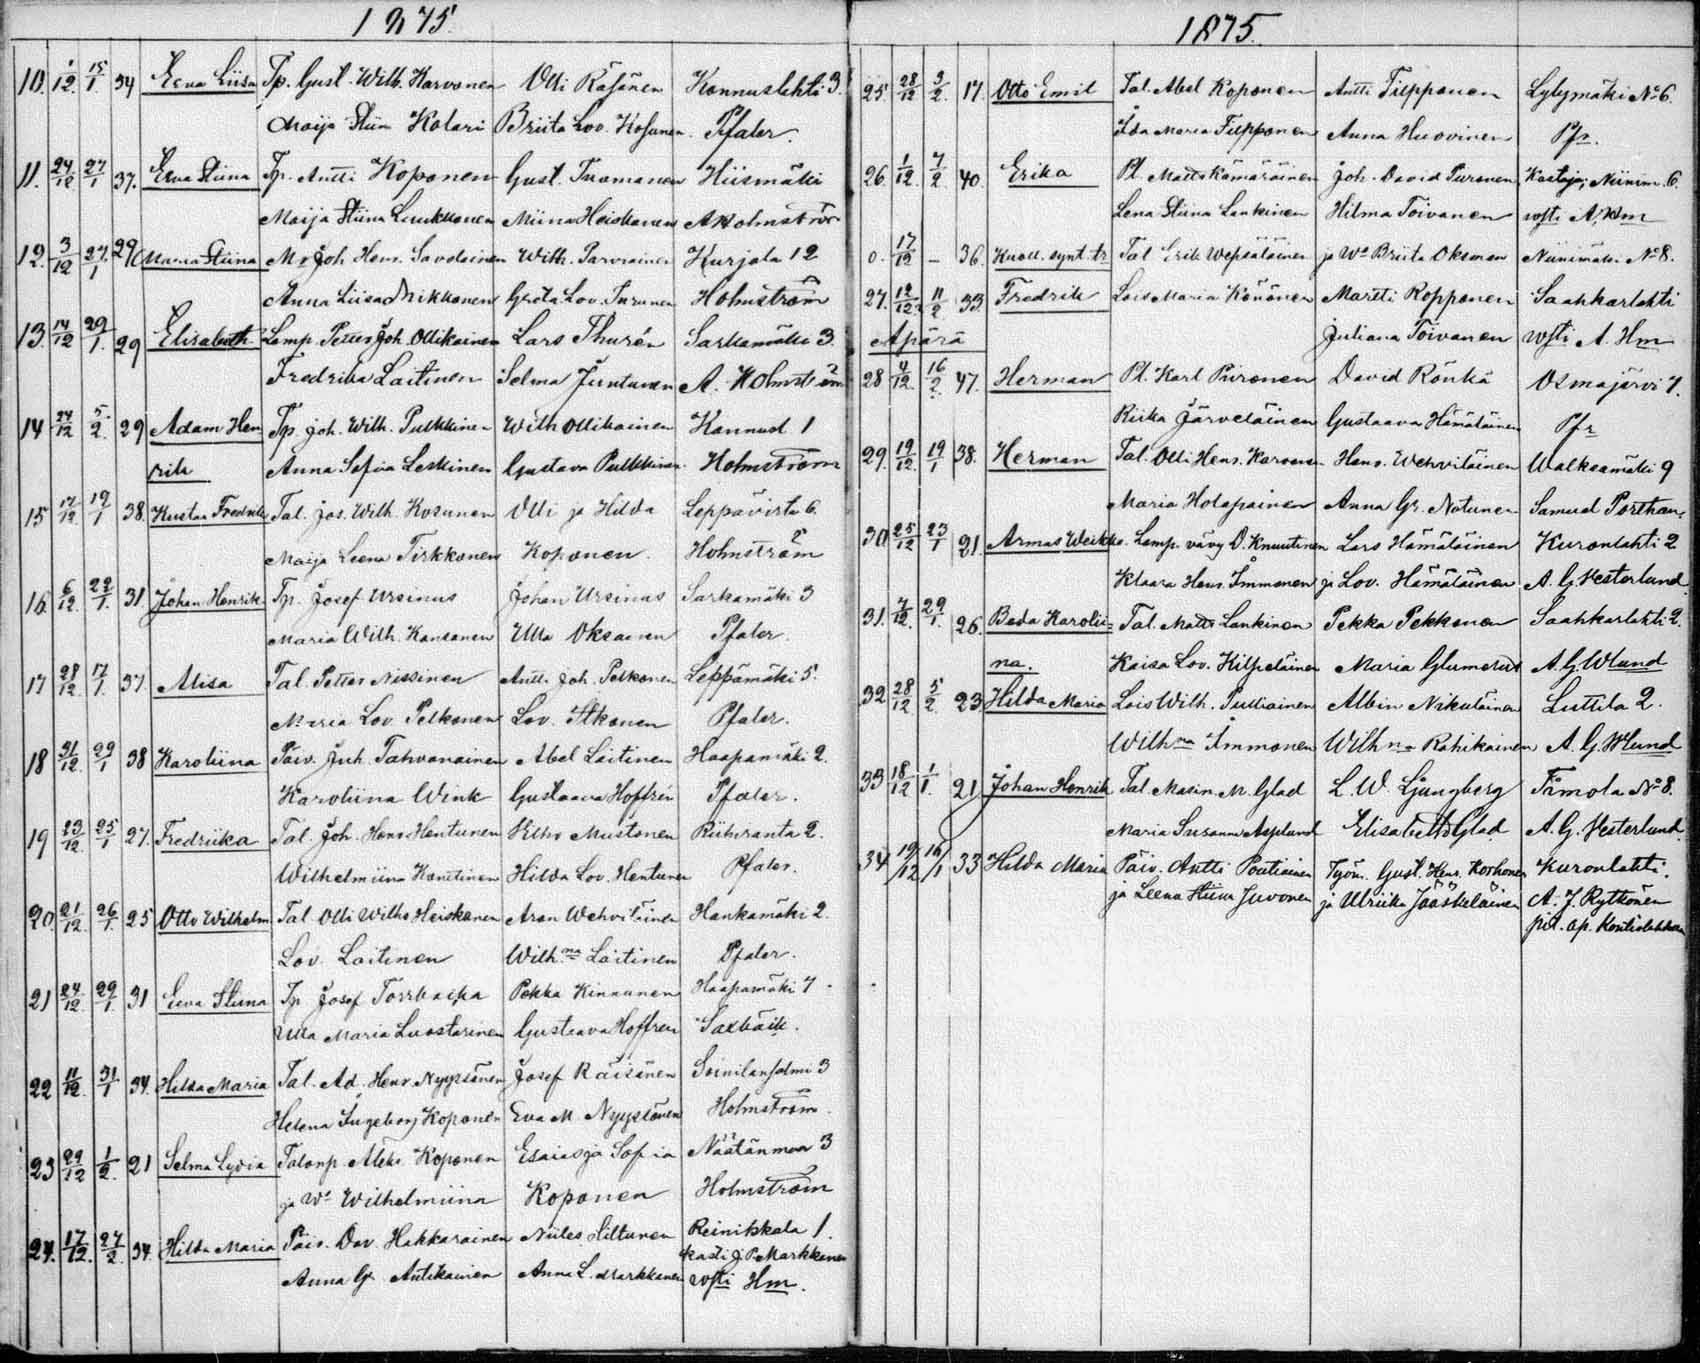 1875.
10. 1/12. 15/1. 34 Eeva Liisa Tp. Gust. Wilh. Karvonen Olli Räsänen Konnuslahti 3.
Maija Stiin Kolari Briita Lov. Kosunen Pfaler.
11. 24/12 27/1 37. Eeva Stiina Tp. Antti Koponen Gust. Tuomanen Hiismäki
Maija Stiina Luukkonen Miina Heiskanen A Holmström
12. 3/12 27./1 29 Maria Stiina Mr Joh. Henr. Savolainen Wilh. Parviainen Kurjala 12
Anna Liisa Mikkonen Greta Lov. Turunen Holmström
13. 14/12 29/1. 29 Elisabeth Lamp. Petter Joh. Ollikainen Lars Thurén Sarkamäki 3
Fredrika Laitinen Selma Juntunen A. Holmström
14 24/12 5/2. 29 Adam Hen Tp. Joh. Wilh. Pulkkinen Wilh Ollikainen Konnusl 1
rik Anna Sofia Leskinen Gustava Pulkkinen Holmström
15 17/12. 19/1 38. Kustaa Fredrik Tal. Jos. Wilh. Kosunen Olli ja Hilda Leppävirta 6.
Maija Leena Tirkkonen Koponen. Holmström
16. 6/12. 22/1. 31. Johan Henrik Tp. Josef Ursinus Johan Ursinus Sarkamäki 3
Maria Wilh. Kansanen Ulla Oksanen Pfaler.
17 28/12. 17/1. 37. Alisa Tal. Petter Nissinen Antti Joh. Pelkonen Leppämäki 5.
Maria Lov Pelkonen Lov. Itkonen Pfaler.
18 31/12. 29/1 38 Karoliina Päiv. Juh. Tahvanainen Abel Laitinen Haapamäki 2.
Karoliina Wink Gustaava Hoffrén Pfaler.
19 23/12. 25/1 27. Fredriika Tal. Joh. Henr. Hentunen Mustonen Riihiranta 2.
Wilhelmiina Hilda Lov. Hentunen Pfaler.
20. 21/12. 26/1. 25 Otto Wilhelm Tal. Olli Wilh. Heiskanen Aron Wehviläinen Hankamäki 2.
Lov. Laitinen Wilh:na Laitinen Pfaler.
21 24/12. 29/1. 31 Eeva Stiina Tp Josef Torrbacka Pekka Kinnunen Haapamäki 7
Ulla Maria Luostarinen Gustaava Hoffren Saxbäck.
22 11/12. 31/1 34. Hilda Maria Tal. Ad. Henr. Nyyssönen Josef Räisänen Soinilansalmi 3
Helena Ingeborg Koponen Eva M. Nyyssönen Holmström.
23 29/12 1/2. 21 Selma Lydia Talonp. Aleks. Koponen Esaias ja Sofia Näätänmaa 3
ja Wo Wilhelmiina Koponen Holmström
24. 17/12. 27/2. 34. Hilda Maria Päiv. Dav. Hakkarainen Niiles Siltunen Reinikkala 1.
kasti J. P. Markkanen
Anna Gr. Antikainen Anna L. Markkanen wsti Hm.
1875.
25. 28/12 3/2. 17. Otto Emil Tal. Abel Koponen Antti Filpponen Lylymäki No 6.
Ida Maria Filpponen Anna Huovinen Pfr.
26. 1/12. 7/2 40. Erika Pl. Matts Kämäräinen Joh. David Puronen Niinim. 6.
Lena Stiina Lankinen Hilma Toivanen wsti A. Hm
0. 17/12 – 36. Kuoll. synt. tr Tal Erik Wepsäläinen ja Wo Briita Oksman Niinimäki No 8.
27. 12/12. 11/2 33. Fredrik Lois Maria Könönen Martti Ropponen Saahkarlahti
Äpärä Juliana Toivanen wsti A. Hm
28 4/12. 16/2. 47. Herman Pl. Karl Puronen David Rönkä Osmajärvi 7.
Riika Järveläinen Gustaava Hämäläinen Pfr
29. 19/12. 19/1 38. Herman Tal. Olli Henr. Karvonen Henr. Wehviläinen Walkeamäki 9
Maria Holopainen Anna Gr. Natunen Samuel Porthan.
30 25/12 23/1 21. Armas Weikko. Lamp. vävy D. Knuutinen Lars Hämäläinen Kuronlahti 2
Klaara Henr. Immonen ja Lov. Hämäläinen A. G. Westerlund.
31. 7/12. 29/1. 26. Beda Karolii= Tal. Matts Lankinen Pekka Pekkonen Saahkarlahti 2.
na. Kaisa Lov. Kilpeläinen Maria Glumerus A. G. Wlund
32 28/12 5/2. 23 Hilda Maria Lois Wilh. Putkiainen Albin Nikulainen Luttila 2.
Wilh:na Immonen Wilh:na Rahikainen A. G. Wlund
33 18/12 1/1. 21 Johan Henrik Tal. Masin. M. Glad L. W. Ljungberg Timola No 8.
Maria Susanna Asplund Elisabeth Glad A. G. Westerlund.
34 19/12 16/1 33 Hilda Maria Päiv. Antti Poutiainen Työm. Gust. Henr. Korhonen Kuronlahti.
ja Leena Stiina Juvonen ja Ulriika Jääskeläinen A. J. Rytkönen
pit. ap. Kontiolahdem